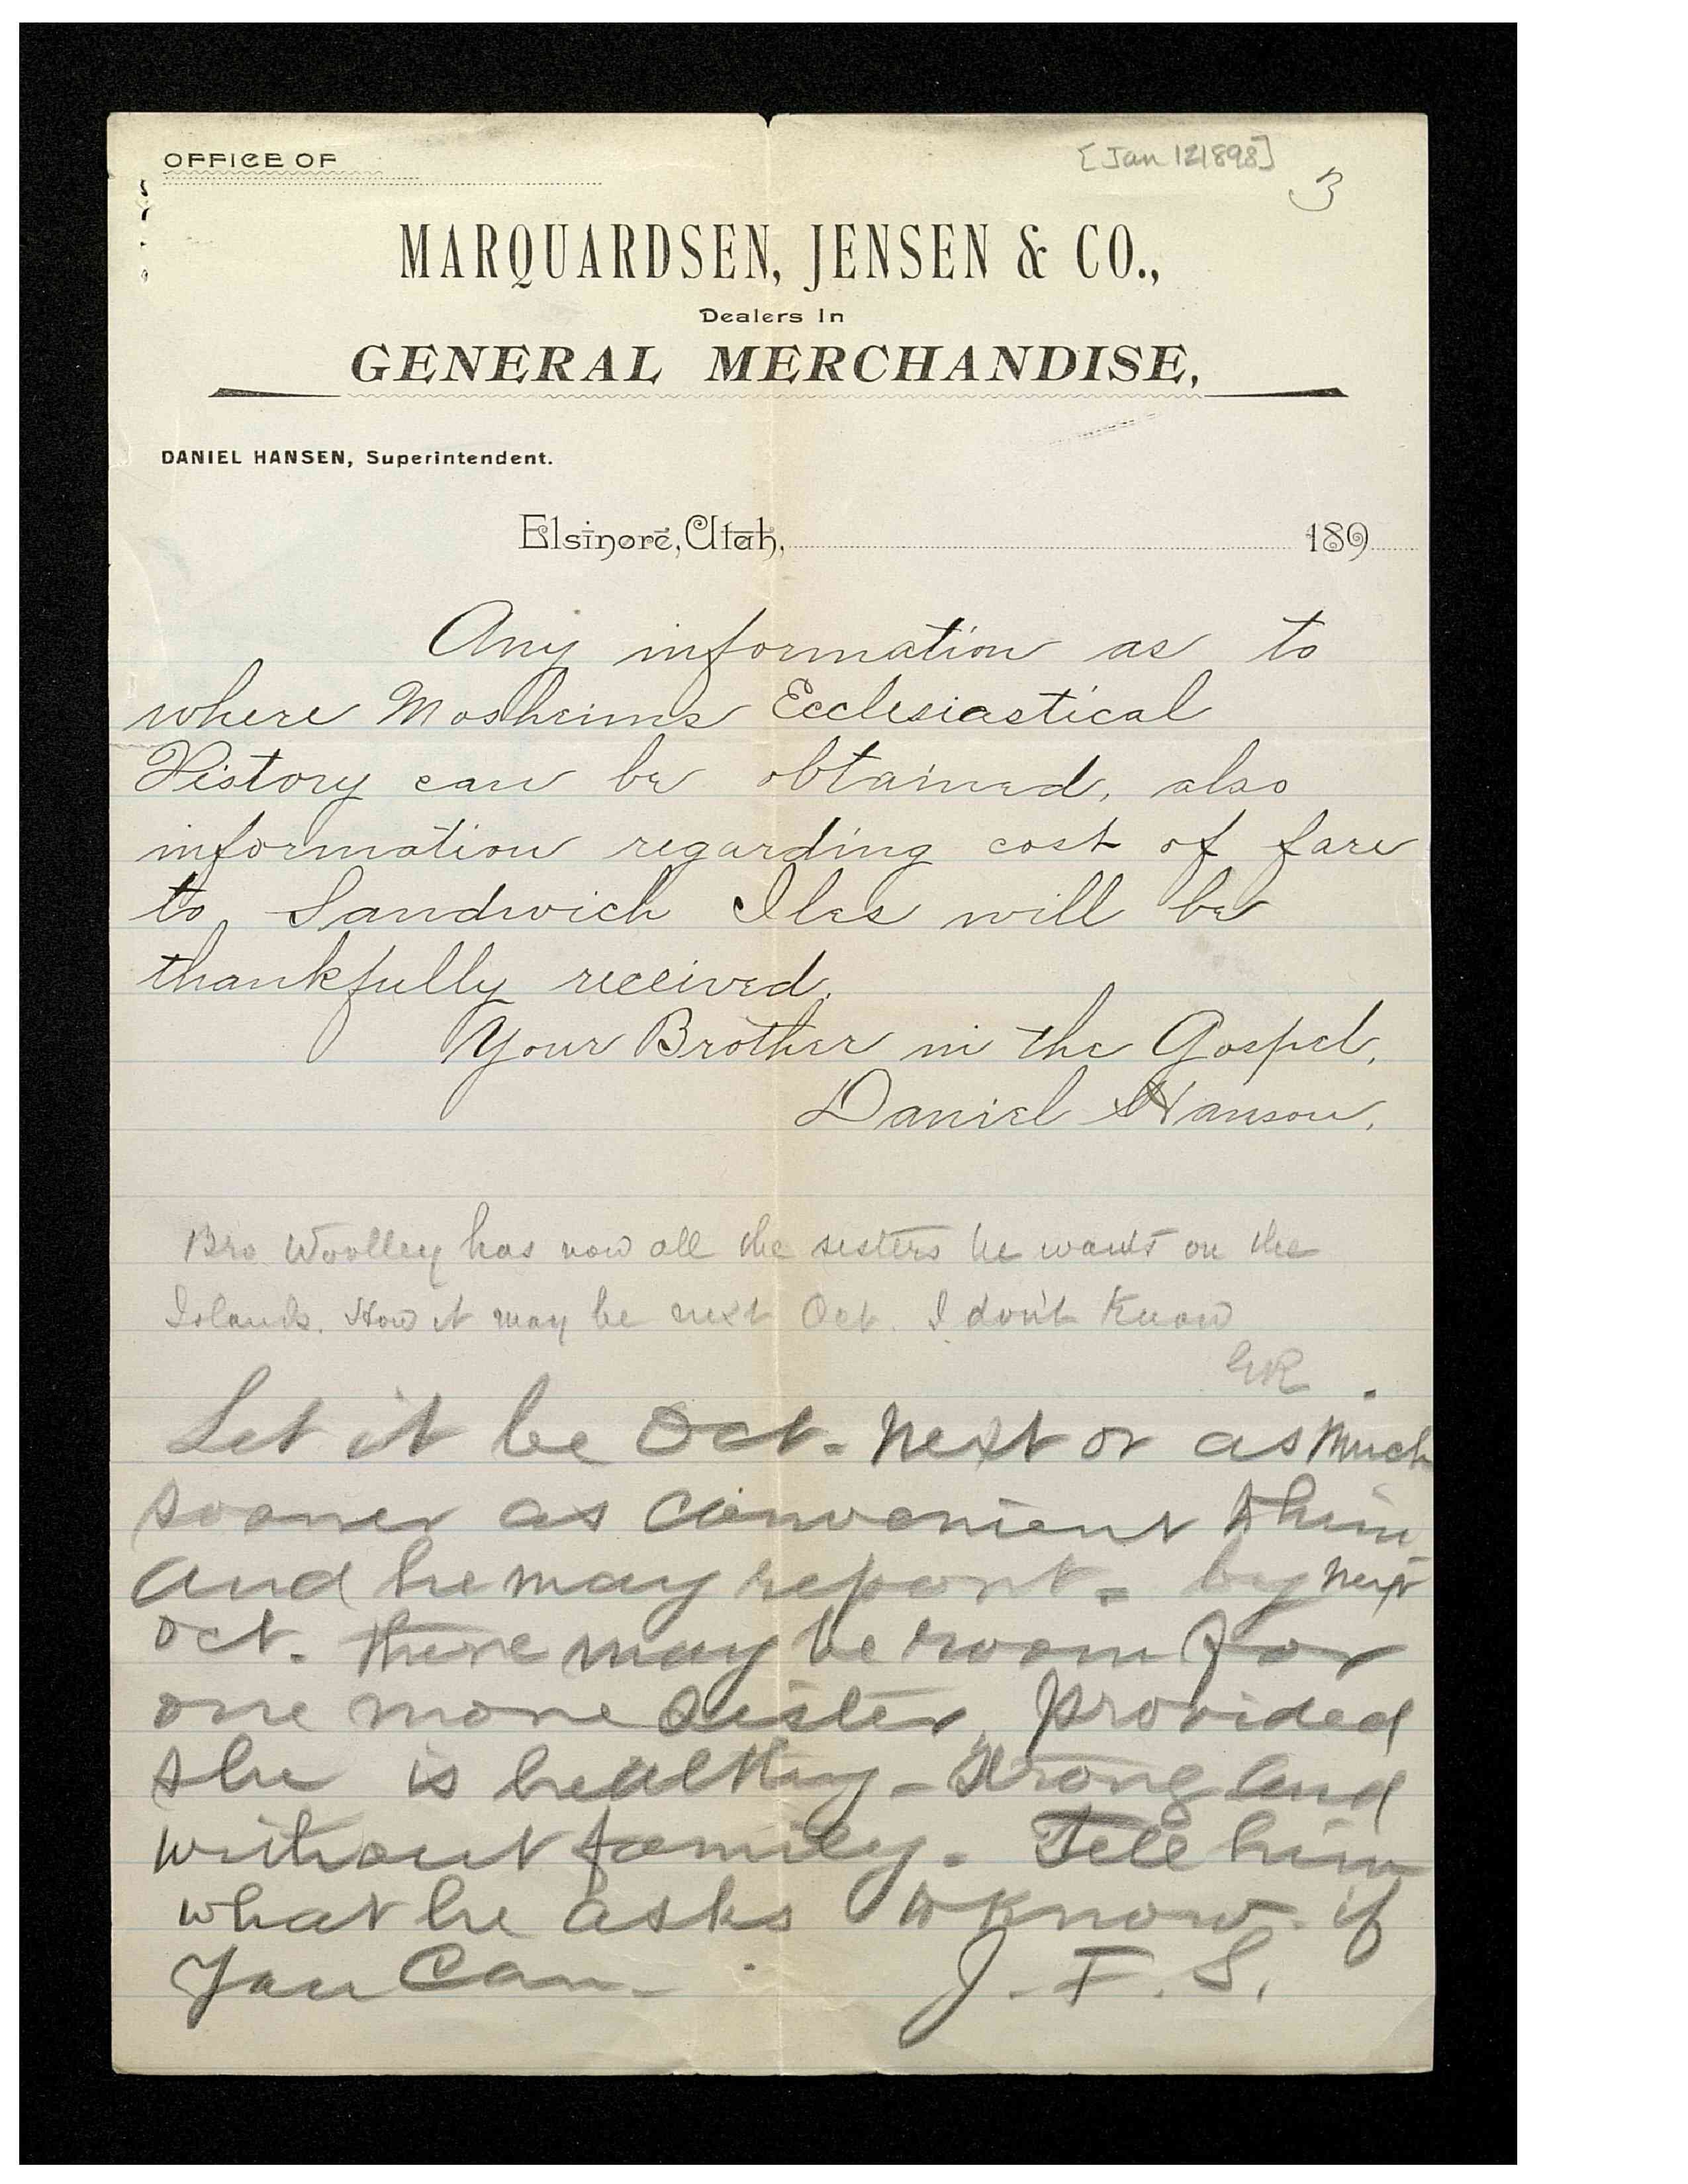 OFFICE OF
[Jan 12 1898]
3
MARQUARDSEN, JENSEN & CO.,
Dealers In
GENERAL MERCHANDISE,
DANIEL HANSEN, Superintendent.
Elsinore, Utah, 189
Any information as to
where Mosheims Ecclesiastical
History can be obtained, also
information regarding cost of fare
to Sandwich Iles will be
thankfully received.
Your Brother in the Gospel,
Daniel Hanson,
Bro Woolley has now all the sisters he wants on the
Islands. How it may be next Oct. I don't know
GR
Let it be Oct. next or as much
sooner as convenient to him
and he may report. by next
oct. there may be room for
one more sister, provided
she is healthy - strong and
without family. Tell him
what he asks to know if
you can.
J. F. S.